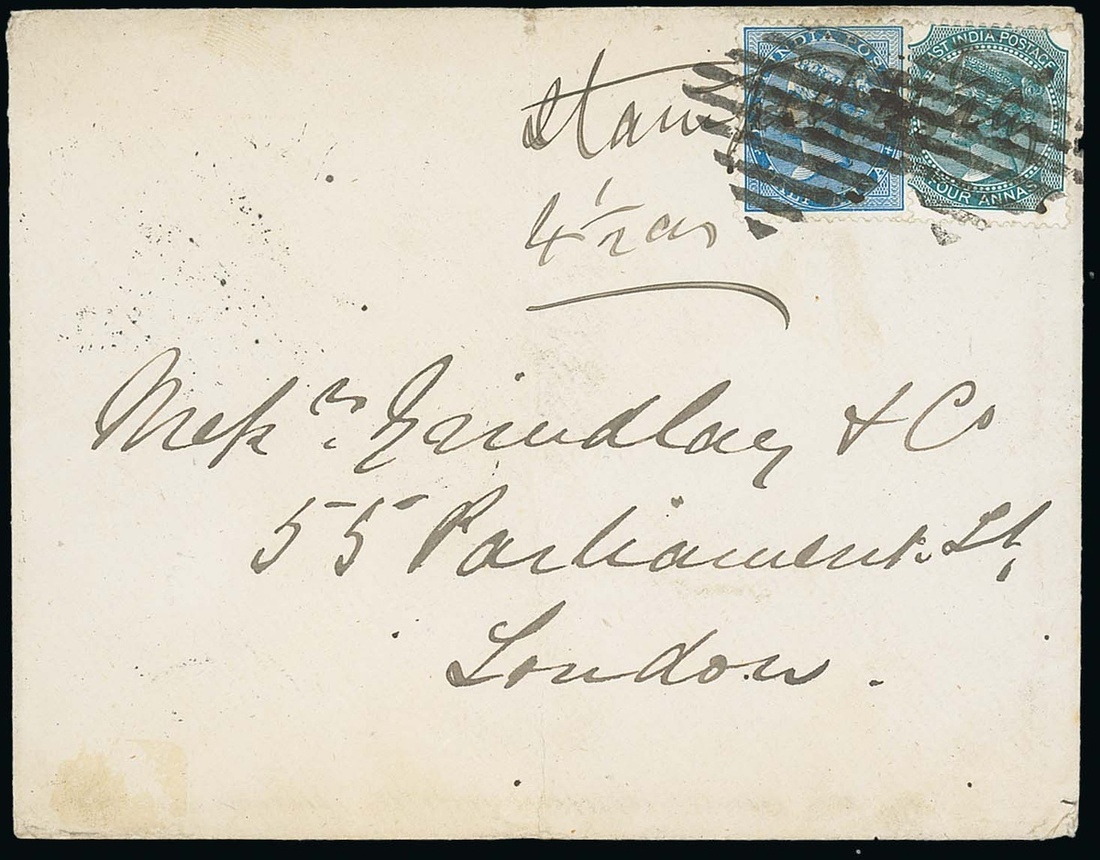 EAST INDIA POSTAGE
FOUR ANNAS
4 1/2 as
Messrs. Grindlay & Co
55 Parliament St,
London.